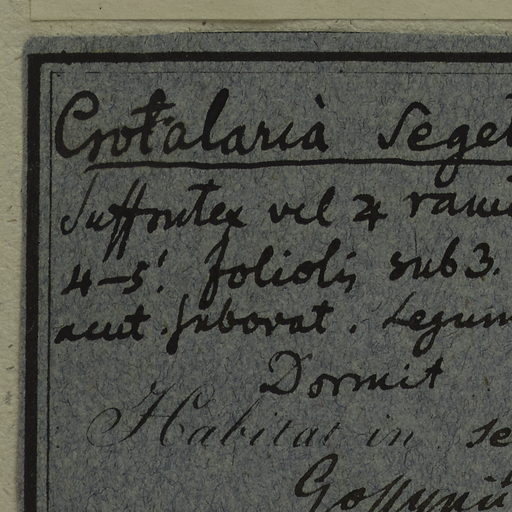 Crotalaria Seget
Suffrutex vel ♃ rami
4-5! foliolis sub 3.
acut. subovat. Legum
Dormit
Habitat in se
Gossypii